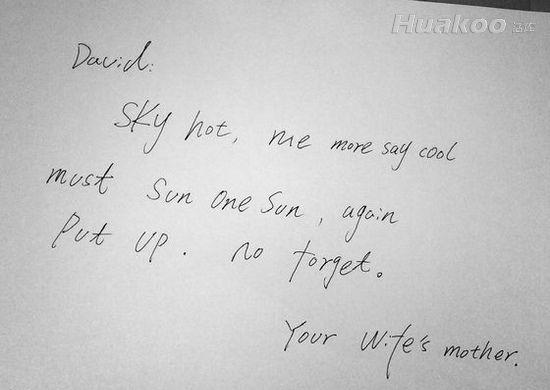 Huakoo 活库
David:
SKY hot, me more say cool
must Sun one Sun, again
Put UP. no forget.
Your Wife's mother.